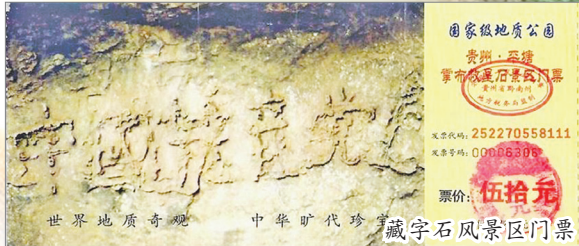 世界地质奇观 中华旷代珍宝
国家级地质公园
贵州·平塘
掌布救星石景区门票
贵州省黔南州
发票代码: 252270558111
发票号码: 00006306
票价: 伍拾元
藏字石风景区门票